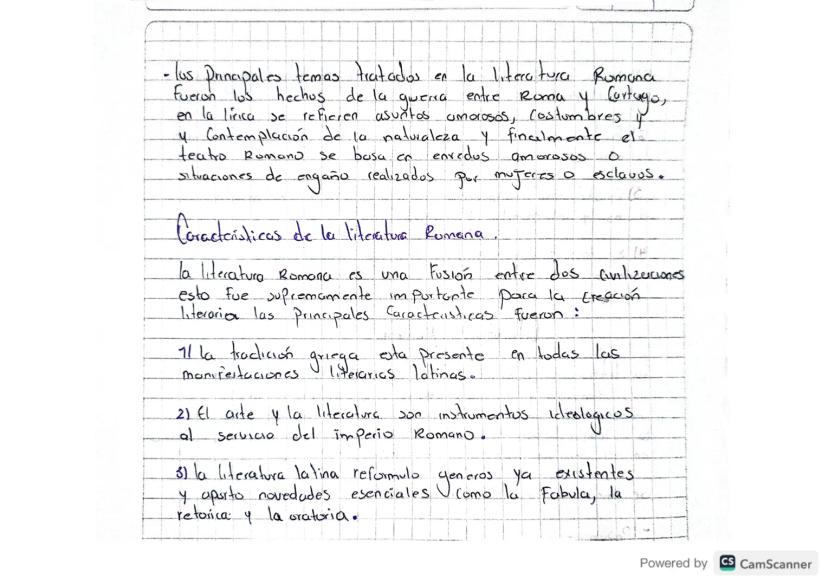 - las Principales temas tratados en la literatura Romana
fueron los hechos de la guerra entre Roma y Cartago,
en la lírica se refieren asuntos amorosos, costumbres y
y Contemplación de la naturaleza y finalmente el
teatro Romano se basa en enredos amorosos o
situaciones de engaño realizados por mujeres o esclavos.
Características de la literatura Romana.
la literatura Romana es una Fusión entre dos civilizaciones
esto fue supremamente importante para la creación
literaria las Principales Características fueron :
1) la tradición griega esta presente en todas las
manifestaciones literarias latinas.
2) El arte y la literatura son instrumentos ideologicos
al servicio del imperio Romano.
3) la literatura latina reformulo generos ya existentes
y aporto novedades esenciales como la Fabula, la
retorica y la oratoria.
Powered by CS CamScanner